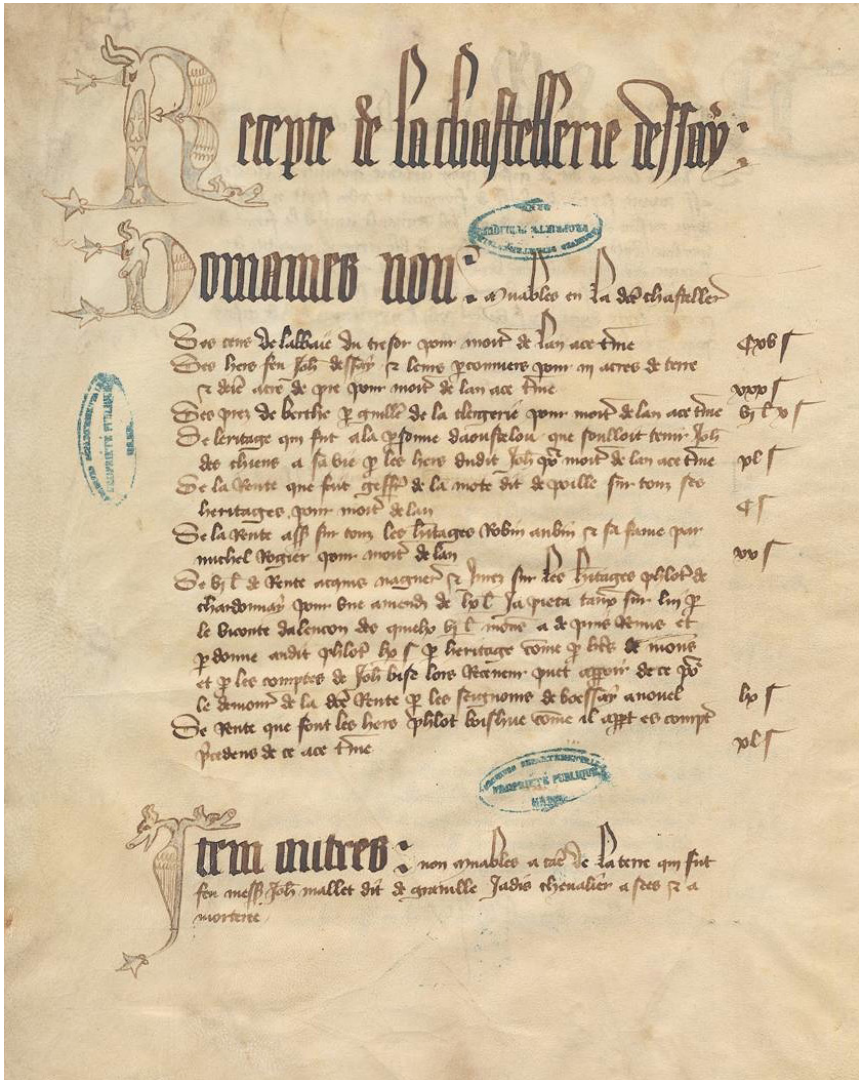 Recepte de la chastellerie dessay :
Domaines non : muables en la dce chasteller
Des cens de labbaie du tresor pour moit de lan ace tme
Des hers feu Joh dessay & leurs pconniers pour III acres de terre
& demie acre de pre pour moit de lan ace tme xxx s
Des prez de berthe p guille de la clergerie pour moit de lan ace tme
De leritage qui fut a la psonne daoustelou que soulloit tenir Joh
des chiens a sa vie p les hers dudit Joh po moit de lan ace tme xl s
De la Rente que fut geff de la mote dit de poille sur touz ses
heritages pour moit de lan C s
De la Rente ass sur touz les hitages Robin aubin & sa fame par
michel Rogier pour moit de lan xv s
De VI l de Rente acquis naguer & sur les hitages philot de
chardonnay pour une amende de LX l Ja pieca taux sur lui p
le viconte dalencon des quielx VI l mons a depuis Remis et
pdonne audit philot LX s p heritage come p lres de mons
et p les comptes de Joh bise lors Receveur puet apparoir de ce po
le demour de la dce Rente p les seignours de boessay a nouel LX s
De Rente que font les hers philot boishue come il appt es compt
pcedens de ce ace tme XL s
ARCHIVES DEPARTEMENTALES
PROPRIÉTÉ PUBLIQUE
Item autres : non muables a cae de la terre qui fut
feu mess Joh mallet dit de graville Jadis chevalier a sees & a
morteree